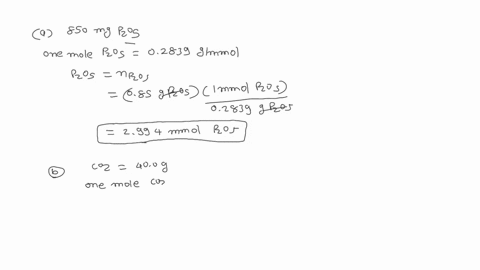 (a) 850 mg P2O5
one mole P2O5 = 0.2839 g/mmol
P2O5 = nP2O5
= (0.85 g P2O5) (1 mmol P2O5)
0.2839 g P2O5
= 2.994 mmol P2O5
(b) CO2 = 40.0 g
one mole CO2